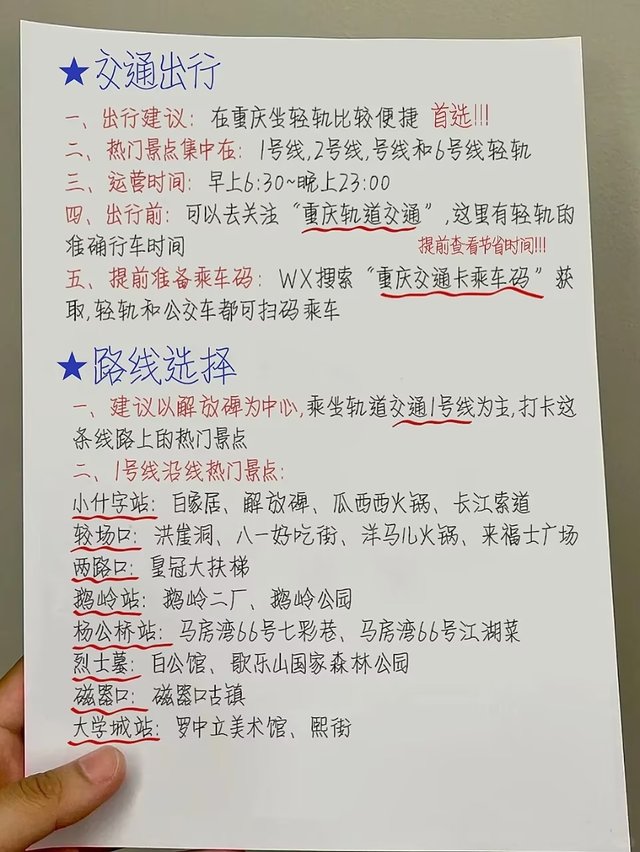 ★交通出行
一、出行建议：在重庆坐轻轨比较便捷 首选!!!
二、热门景点集中在：1号线,2号线,号线和6号线轻轨
三、运营时间：早上6:30~晚上23:00
四、出行前：可以去关注“重庆轨道交通”,这里有轻轨的
准确行车时间 提前查看节省时间!!!
五、提前准备乘车码：WX搜索“重庆交通卡乘车码”获
取,轻轨和公交车都可扫码乘车
★路线选择
一、建议以解放碑为中心,乘坐轨道交通1号线为主,打卡这
条线路上的热门景点
二、1号线沿线热门景点:
小什字站：白家居、解放碑、瓜西西火锅、长江索道
较场口：洪崖洞、八一好吃街、洋马儿火锅、来福士广场
两路口：皇冠大扶梯
鹅岭站：鹅岭二厂、鹅岭公园
杨公桥站：马房湾66号七彩巷、马房湾66号江湖菜
烈士墓：白公馆、歌乐山国家森林公园
磁器口：磁器口古镇
大学城站：罗中立美术馆、熙街